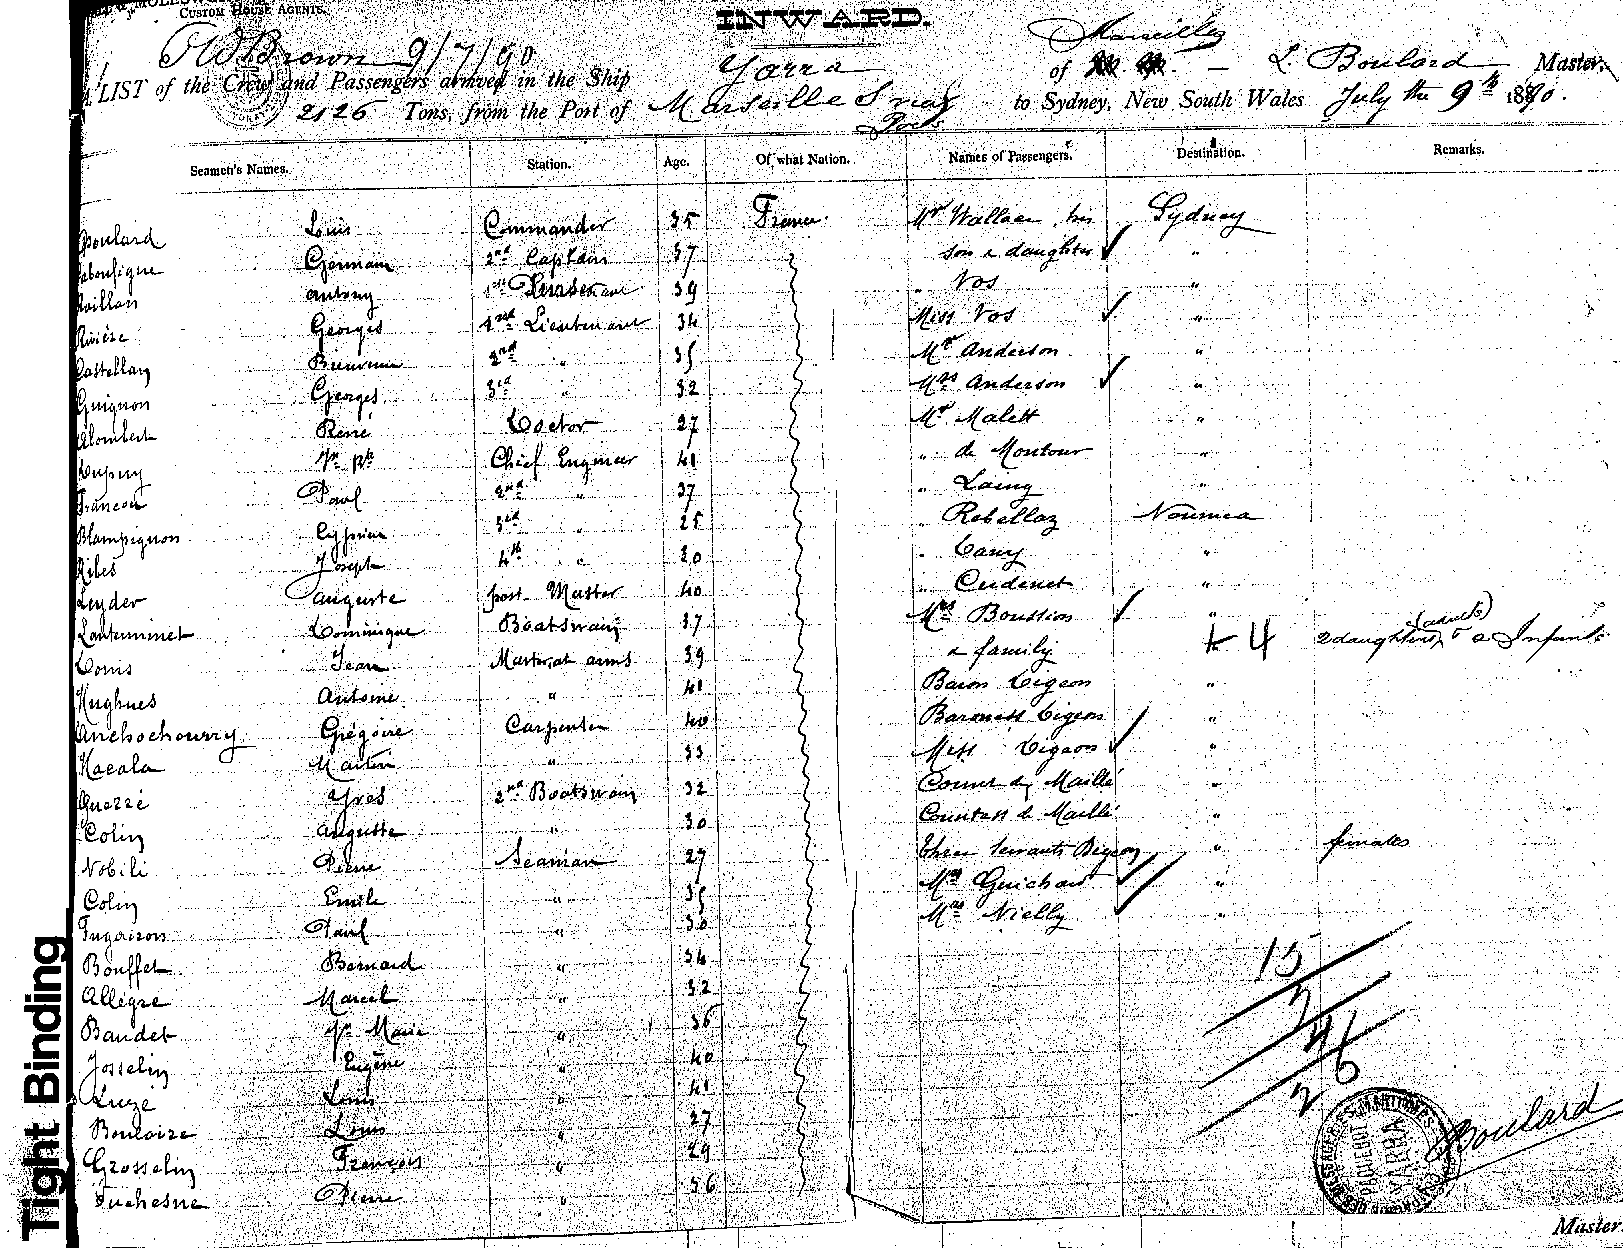 CUSTOM HOUSE AGENTS.
INWARD.
Brown 9/7/90
A LIST of the Crew and Passengers arrived in the Ship Yarra of Marseilles — L. Boulard Master,
2126 Tons, from the Port of Marseilles & Ports to Sydney, New South Wales July the 9th 1890.
Seamen's Names. Station. Age. Of what Nation. Names of Passengers. Destination. Remarks.
Boulard Louis Commander 35 France Mr Wallace his Sydney
Germain 2nd Captain 37 son & daughter "
Antony 39 " Vos "
Rivière Georges 2nd Lieutenant 34 Miss Vos "
Castellan 2nd " 35 Mr Anderson "
Guignon Georges 3rd " 32 Mrs Anderson "
Alombert René Doctor 27 Mr Malett "
Dupuy Jn Bte Chief Engineer 41 " de Montour "
Francou Paul 2nd " 37 " Laing "
Blampignon Cyprien 3rd " 25 " Rebellaz Noumea
Ribes Joseph 4th " 30 " Cany "
Leyder Auguste post Master 40 " Cudenet "
Lantuminet Dominique Boatswain 37 Mrs Boussion "
Jean Master at arms 39 & family 4 2 daughters (adults) & 2 Infants
Hughues Antoine " 41 Baron Digeon "
Anchochourry Grégoire Carpenter 40 Baroness Digeon "
Martin " 33 Miss Digeon "
Guezze Yves 2nd Boatswain 32 de Maillé "
Colin Auguste " 30 Countess de Maillé "
Nobili Pierre Seaman 27 Three Servants Digeon " females
Colin Emile " 35 Guichard "
Paul " 30 Nielly "
Bouffet Bernard " 34
Allègre Marcel " 32
Baudet Jn Marie " 36
Josselin Eugène " 40
Luze Louis " 41
Bouloize Louis " 27
Grosselin François " 29
Duchesne Pierre " 36
15
2
46
2
YARRA
Boulard
Master.
Tight Binding